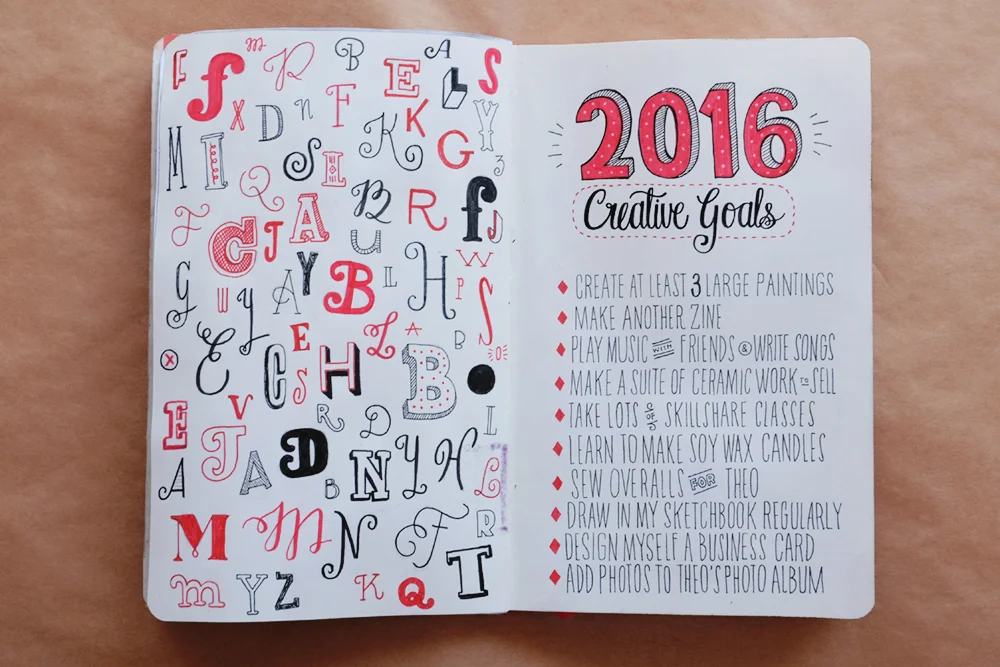 f m P B E A L S
X D n F K K G Y 3
M I Q S L
C J A B R f J
U
G W y A Y B L H W P S
X E C E S H L A B B
E V J R D I
A A D B N Y H L
M M N F R T
m Y Z K Q
2016
Creative Goals
CREATE AT LEAST 3 LARGE PAINTINGS
MAKE ANOTHER ZINE
PLAY MUSIC WITH FRIENDS & WRITE SONGS
MAKE A SUITE OF CERAMIC WORK TO SELL
TAKE LOTS OF SKILLSHARE CLASSES
LEARN TO MAKE SOY WAX CANDLES
SEW OVERALLS FOR THEO
DRAW IN MY SKETCHBOOK REGULARLY
DESIGN MYSELF A BUSINESS CARD
ADD PHOTOS TO THEO'S PHOTO ALBUM